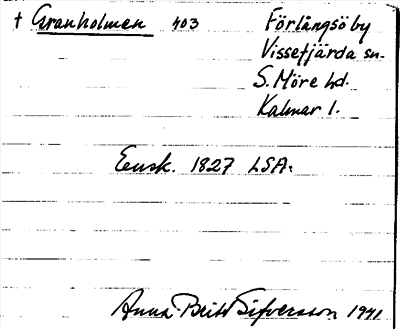 † Granholmen 403 Förlångsö by
Vissefjärda sn.
S. Möre hd.
Kalmar l.
Ensk. 1827 LSA.
Anna-Britt Sifversson 1941